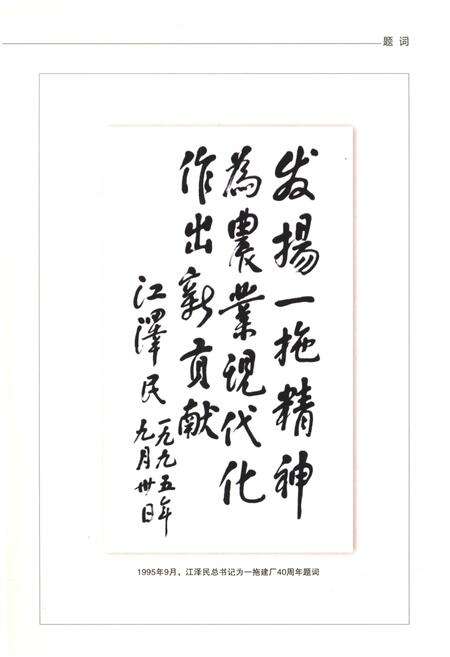 题 词
发揚一拖精神
為農業現代化
作出新贡献
江澤民
一九九五年
九月卅日
1995年9月，江泽民总书记为一拖建厂40周年题词